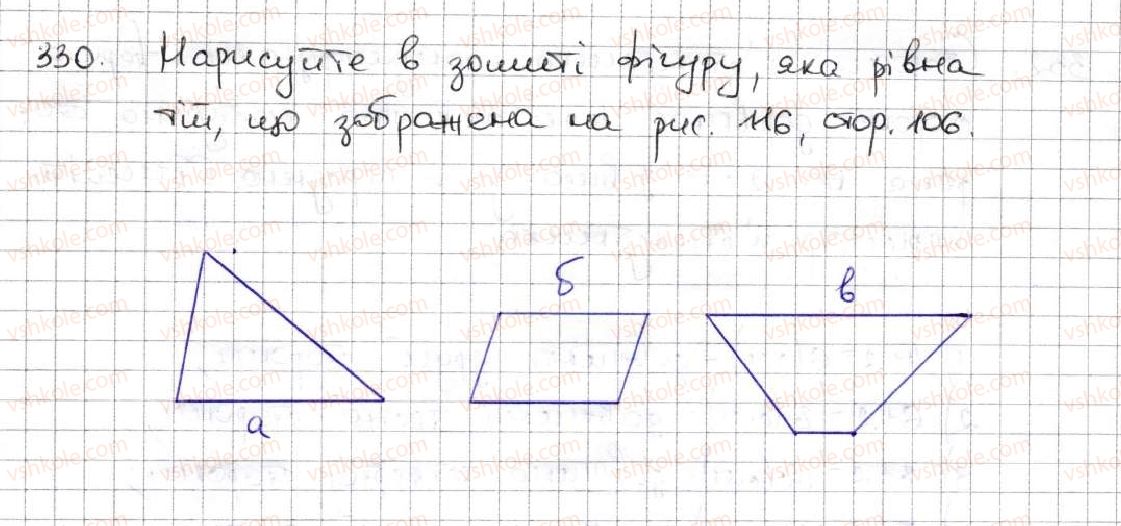 330. Нарисуйте в зошиті фігуру, яка рівна
тій, що зображена на рис. 116, стор. 106.
б
в
а